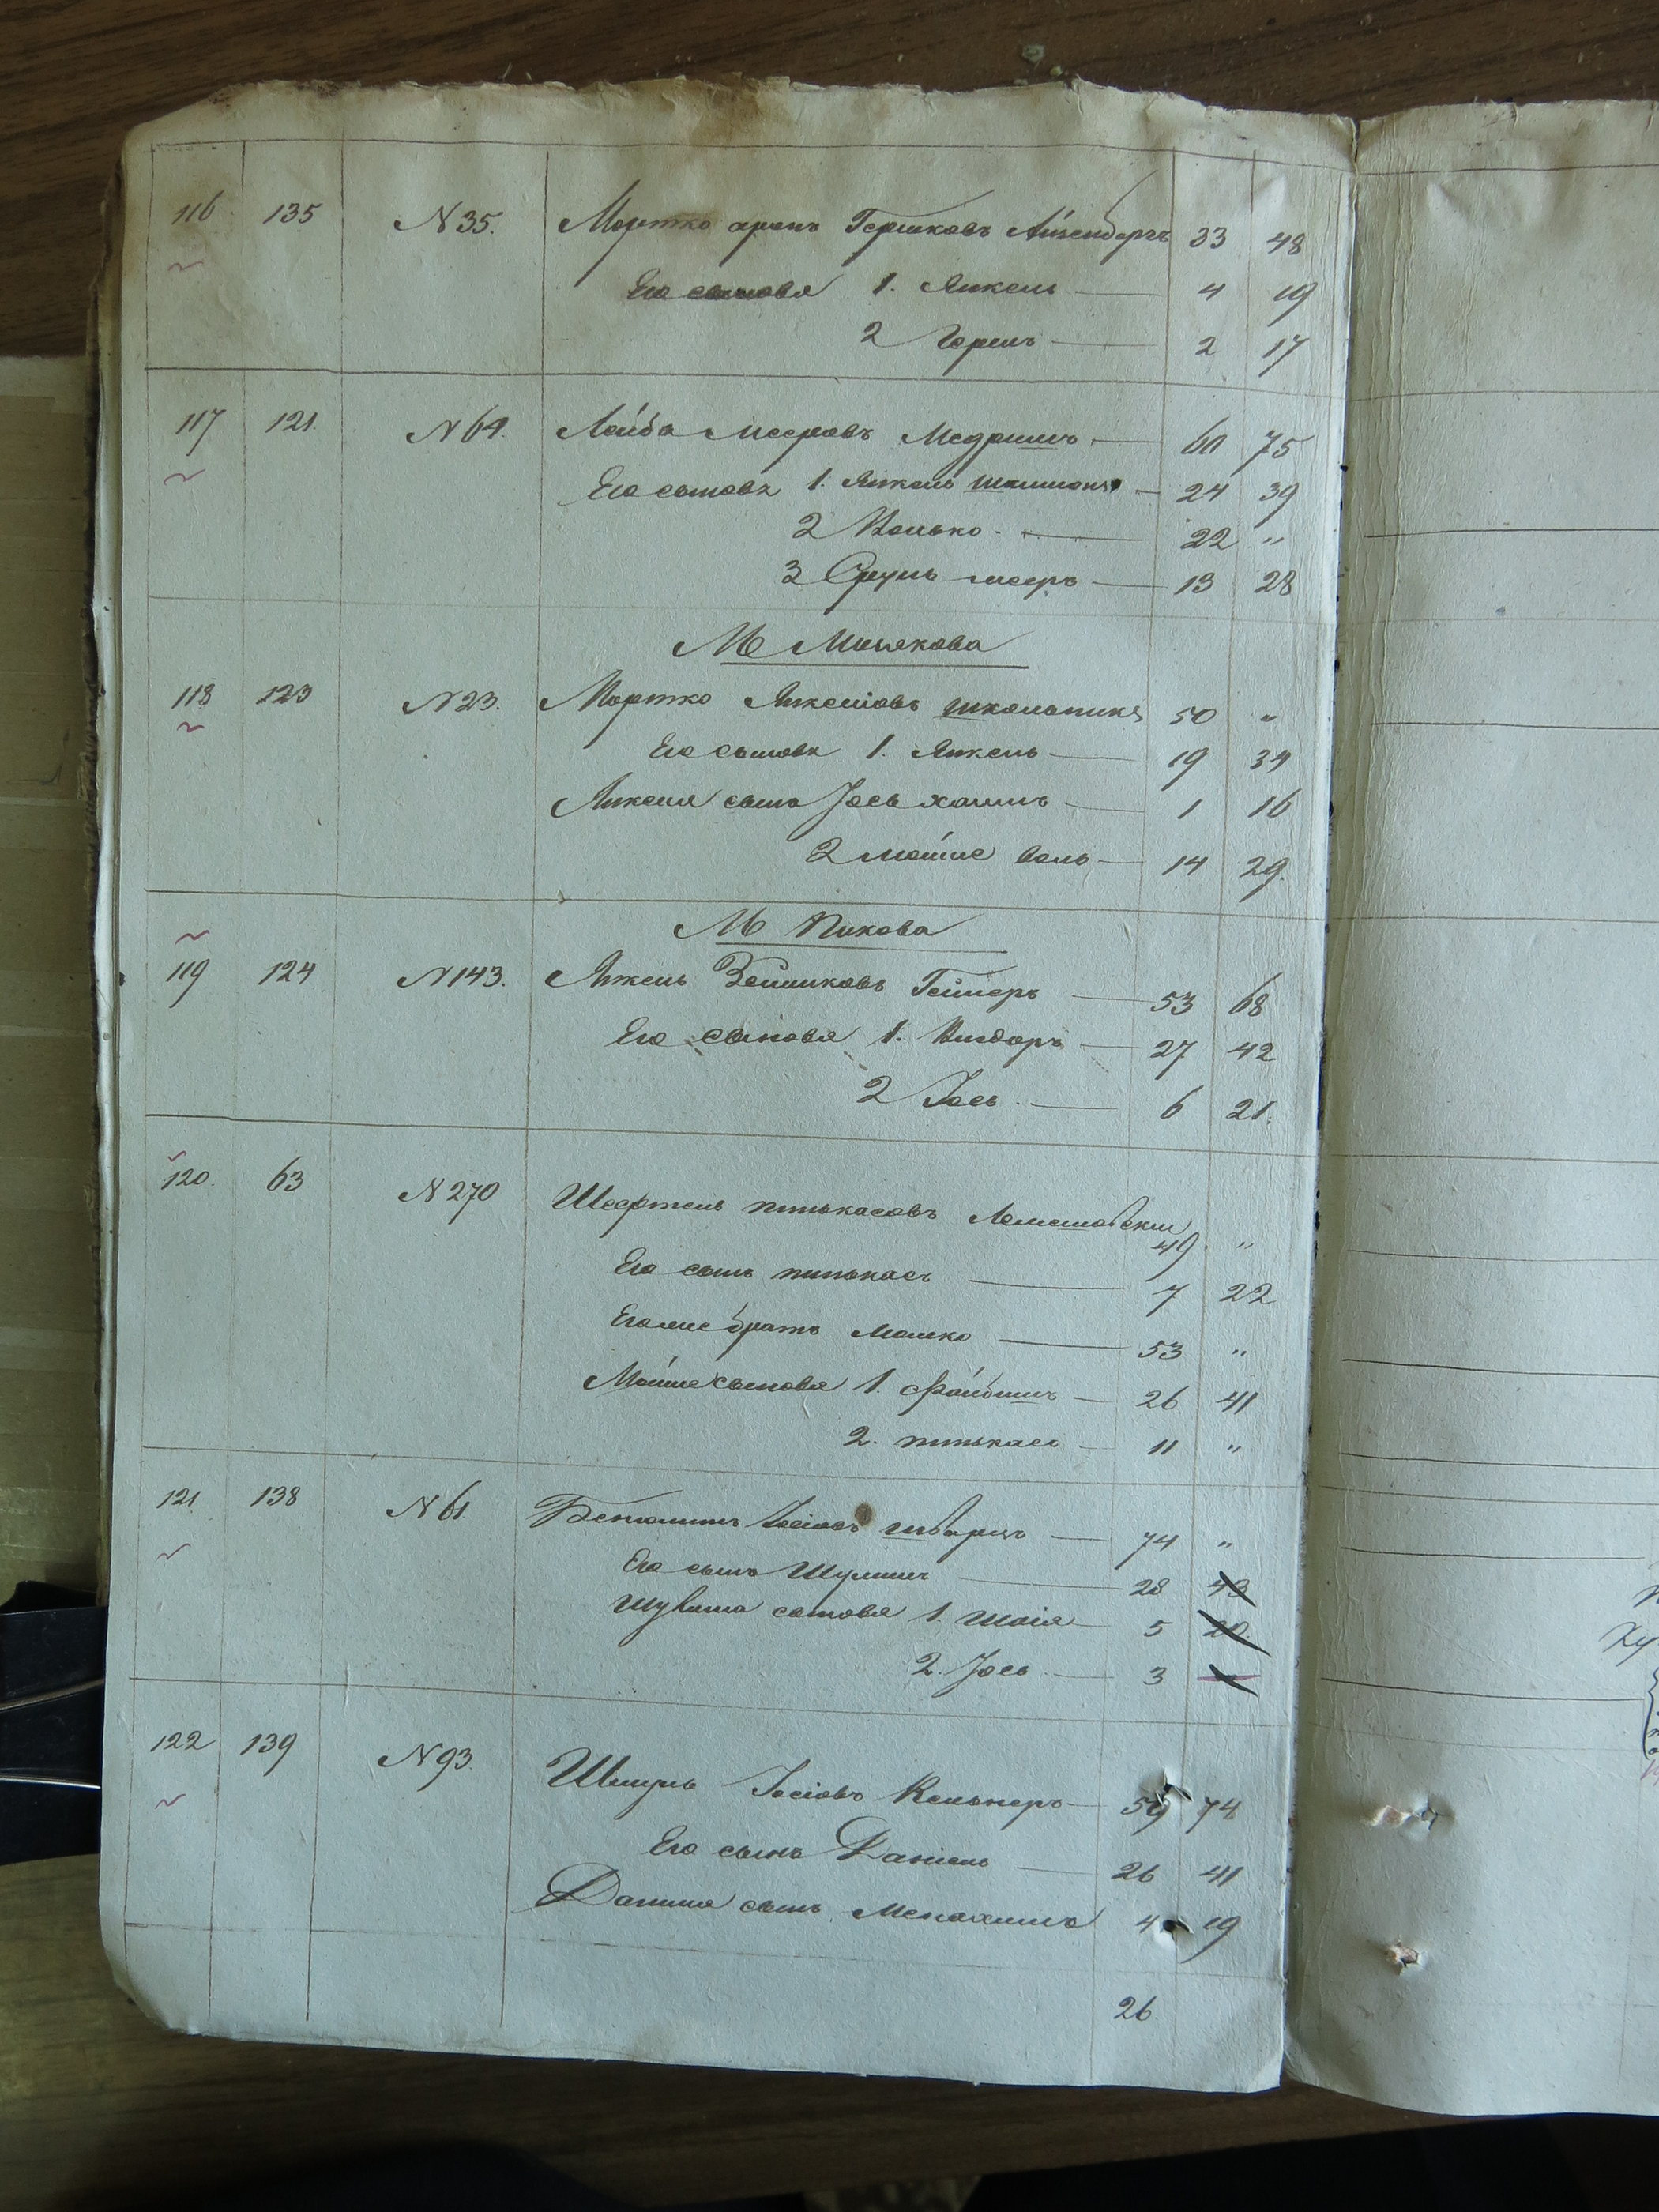 116 135 N 35. Мортко аронъ Гершковъ Айзенбергъ 33 48
Его сыновя 1. Янкель 4 19
2 Гершъ 2 17
117 121. N 64. Лейба Мееровъ Медришъ 60 75
Его сыновя 1. Янкель 24 39
2 Волько 22 "
3 Сруль мееръ 13 28
М Миьякова
118 123 N 23. Мортко Янкеліовъ школьникъ 50 "
Его сыновя 1. Янкель 19 34
Янкеля сынъ Іось хаимъ 1 16
2 мойше 14 29.
М Пикова
119 124 N 143. Янкель Зейликовъ 53 68
Его сыновя 1. Вигдоръ 27 42
2 Іось 6 21.
120. 63 N 270 пинькасовъ 49 "
Его сынъ пинькасъ 7 22
Его же братъ Мошко 53 "
Мошка сыновя 1. Файбишъ 26 41
2. пинькасъ 11 "
121 138 N 61 Беньяминъ Іосіовъ шварцъ 74 "
Его сынъ 28 43
сыновя 1. Шаія 5 20.
2. Іось 3
122 139 N 93. Шмуль Іосіовъ Кельнеръ 59 74
Его сынъ Даніель 26 41
Даниля сынъ Менахимъ 4 19
26